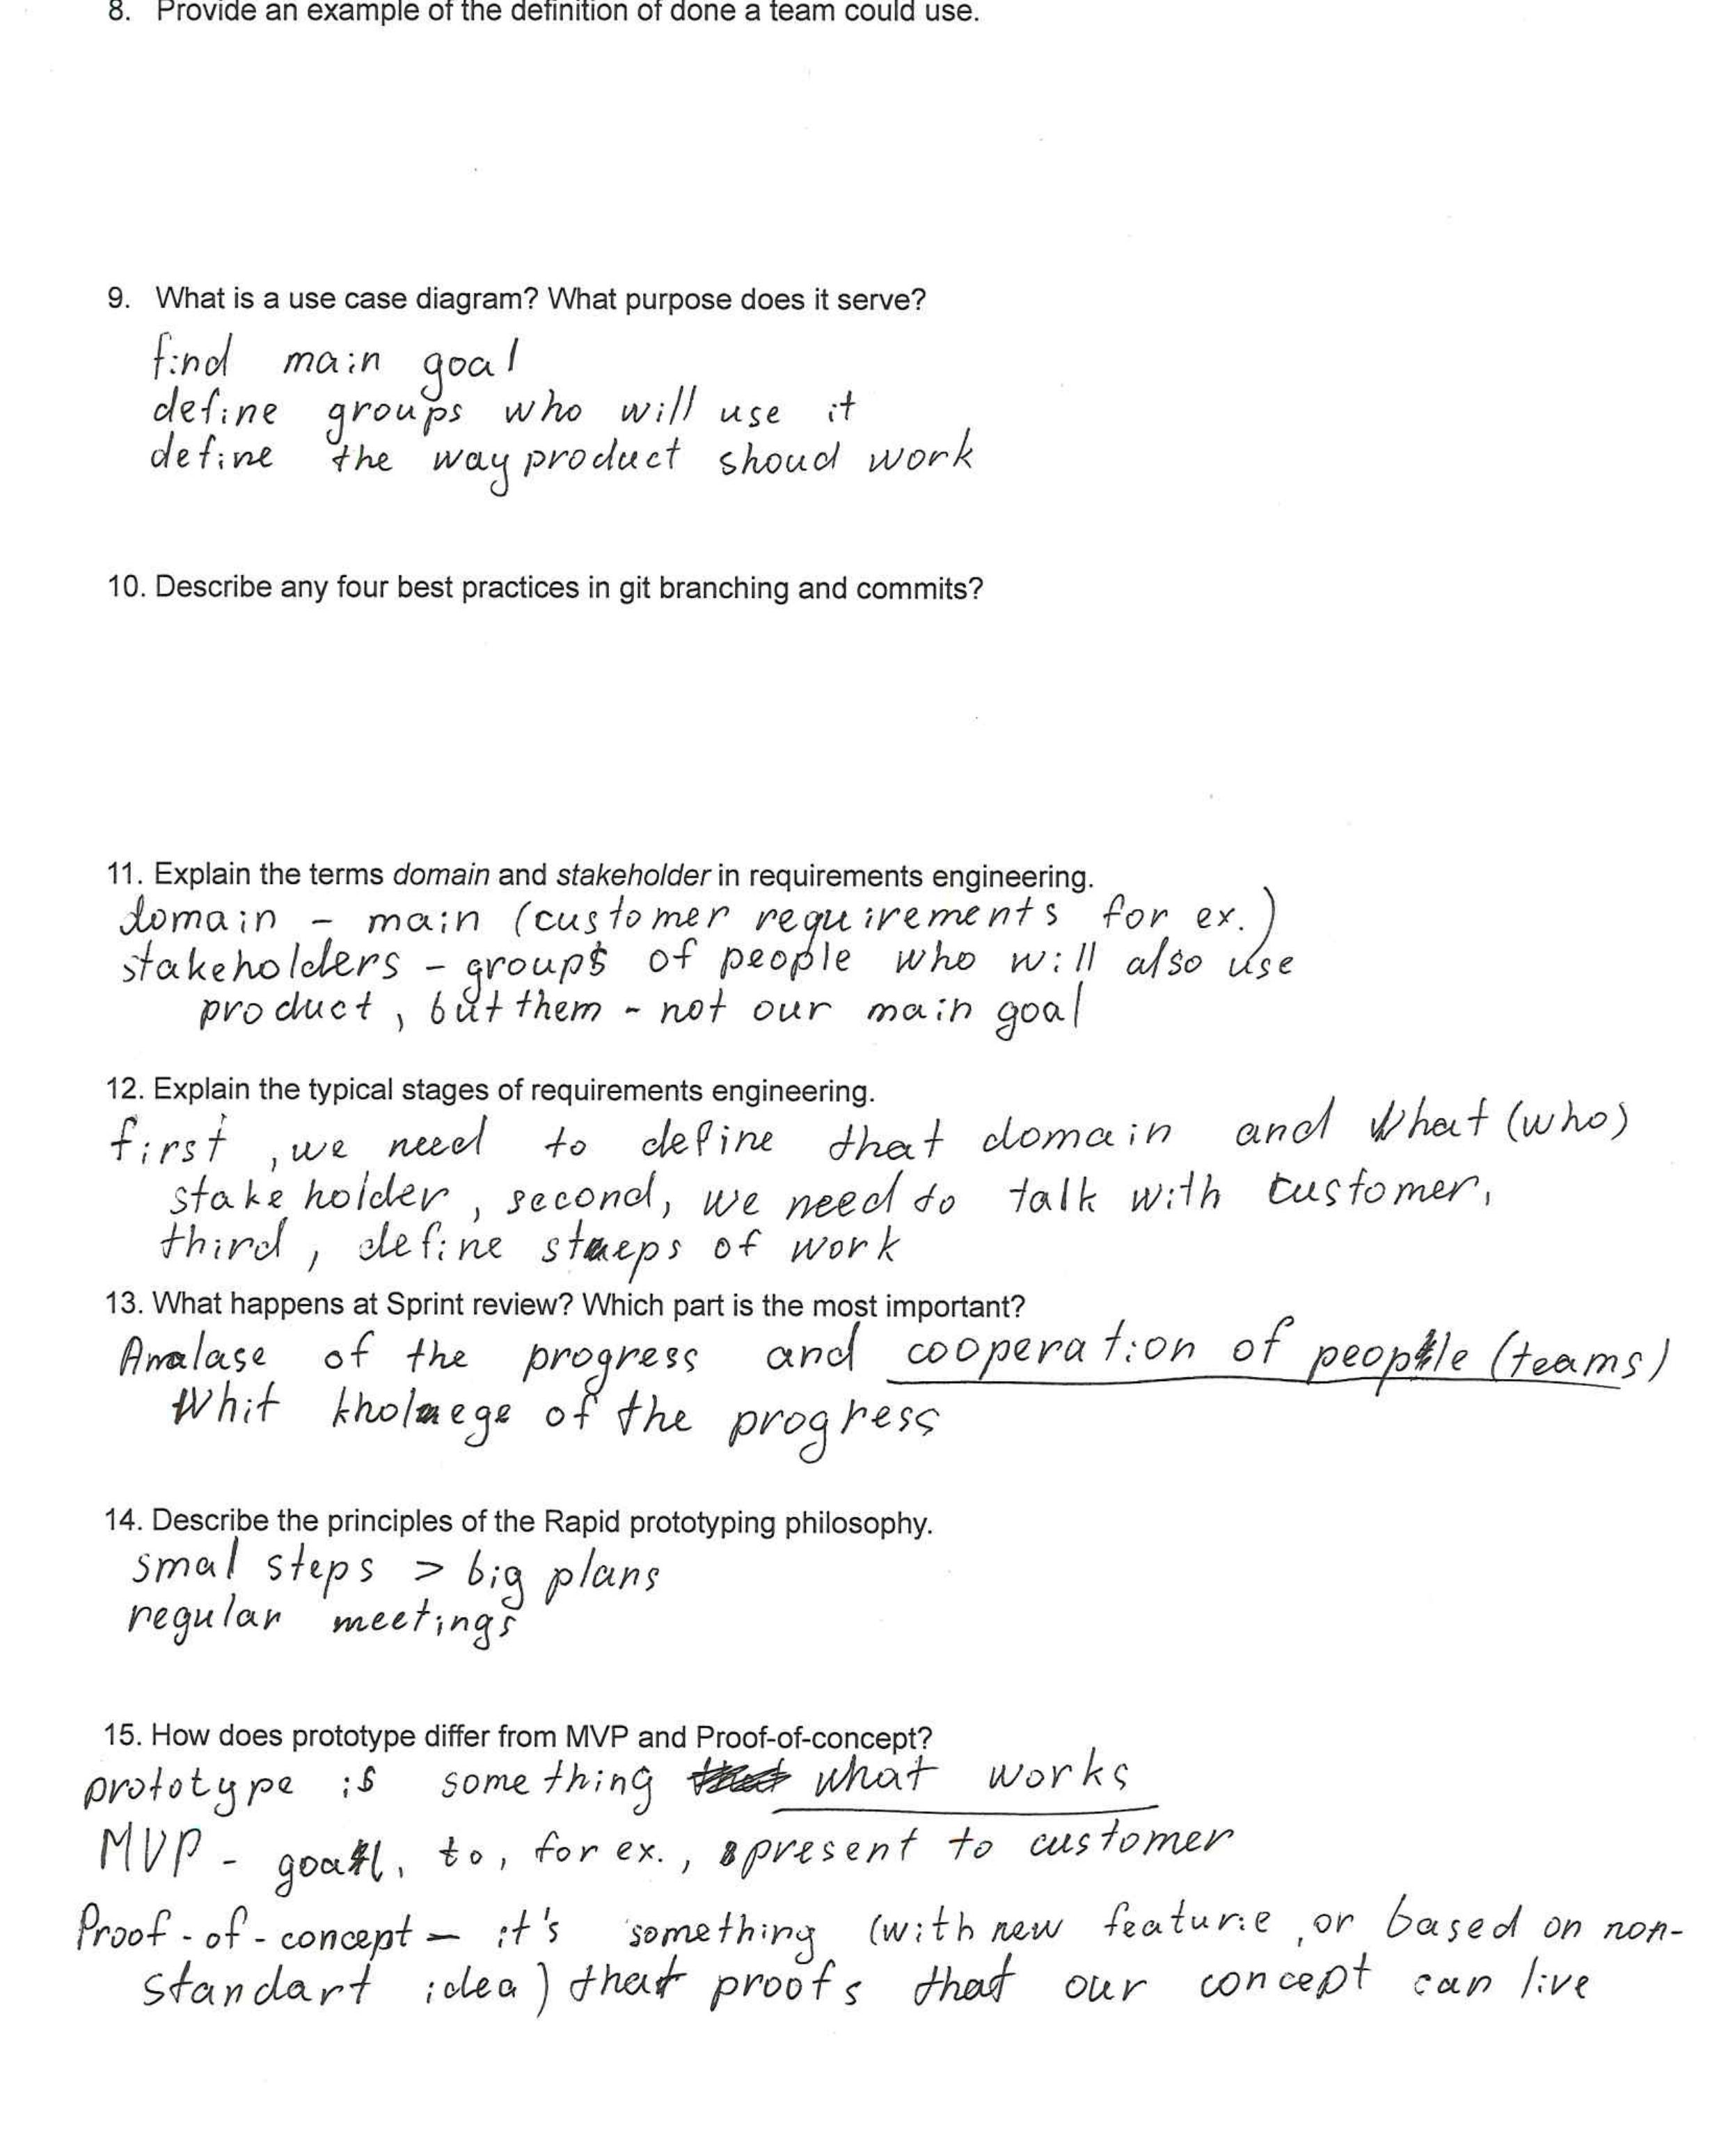 8. Provide an example of the definition of done a team could use.
9. What is a use case diagram? What purpose does it serve?
find main goal
define groups who will use it
define the way product shoud work
10. Describe any four best practices in git branching and commits?
11. Explain the terms domain and stakeholder in requirements engineering.
domain - main (customer requirements for ex.)
stakeholders - groups of people who will also use
product, but them - not our main goal
12. Explain the typical stages of requirements engineering.
first, we need to define that domain and what (who)
stake holder, second, we need to talk with customer,
third, define steps of work
13. What happens at Sprint review? Which part is the most important?
Analase of the progress and cooperation of people (teams)
whit of the progress
14. Describe the principles of the Rapid prototyping philosophy.
smal steps > big plans
regular meetings
15. How does prototype differ from MVP and Proof-of-concept?
prototype is something what works
MVP - goal, to, for ex., present to customer
Proof-of-concept - it's something (with new feature, or based on non-
standart idea) that proofs that our concept can live